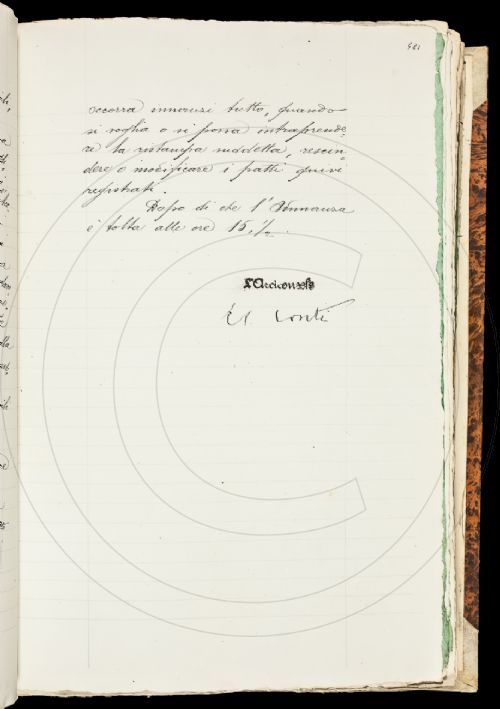 481
occorra innanzi tutto, quando
si voglia o si possa intraprende-
re la ristampa suddetta, rescin-
dere o modificare i patti quivi
registrati.
Dopo di che l'Adunanza
è tolta alle ore 15,½.
L'Arciconsolo
Conti